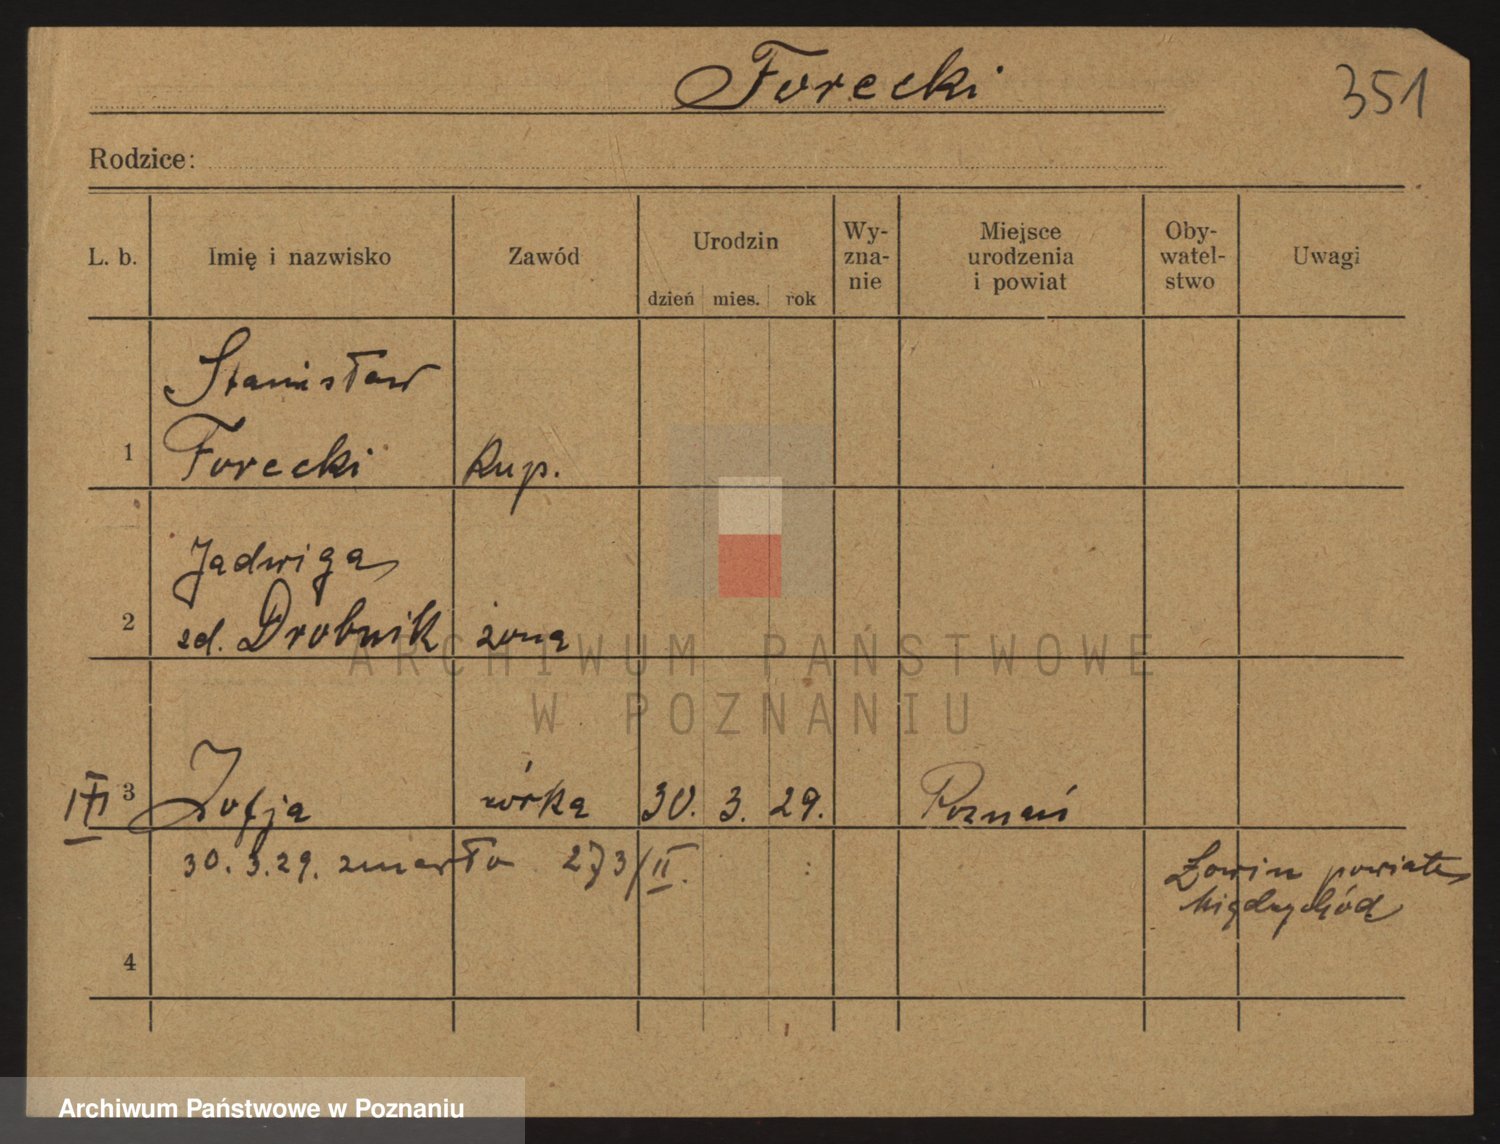 Forecki
351
Rodzice:
L. b. Imię i nazwisko Zawód Urodzin dzień mies. rok Wy-zna-nie Miejsce urodzenia i powiat Oby-watel-stwo Uwagi
Stanisław
1 Forecki kup.
Jadwiga
2 zd. Drobnik żona
3 Zofja córka 30. 3. 29. Poznań
30. 3. 29. zmarła 273/II.
Łowin powiat
Międzychód
4
ARCHIWUM PAŃSTWOWE
W POZNANIU
Archiwum Państwowe w Poznaniu